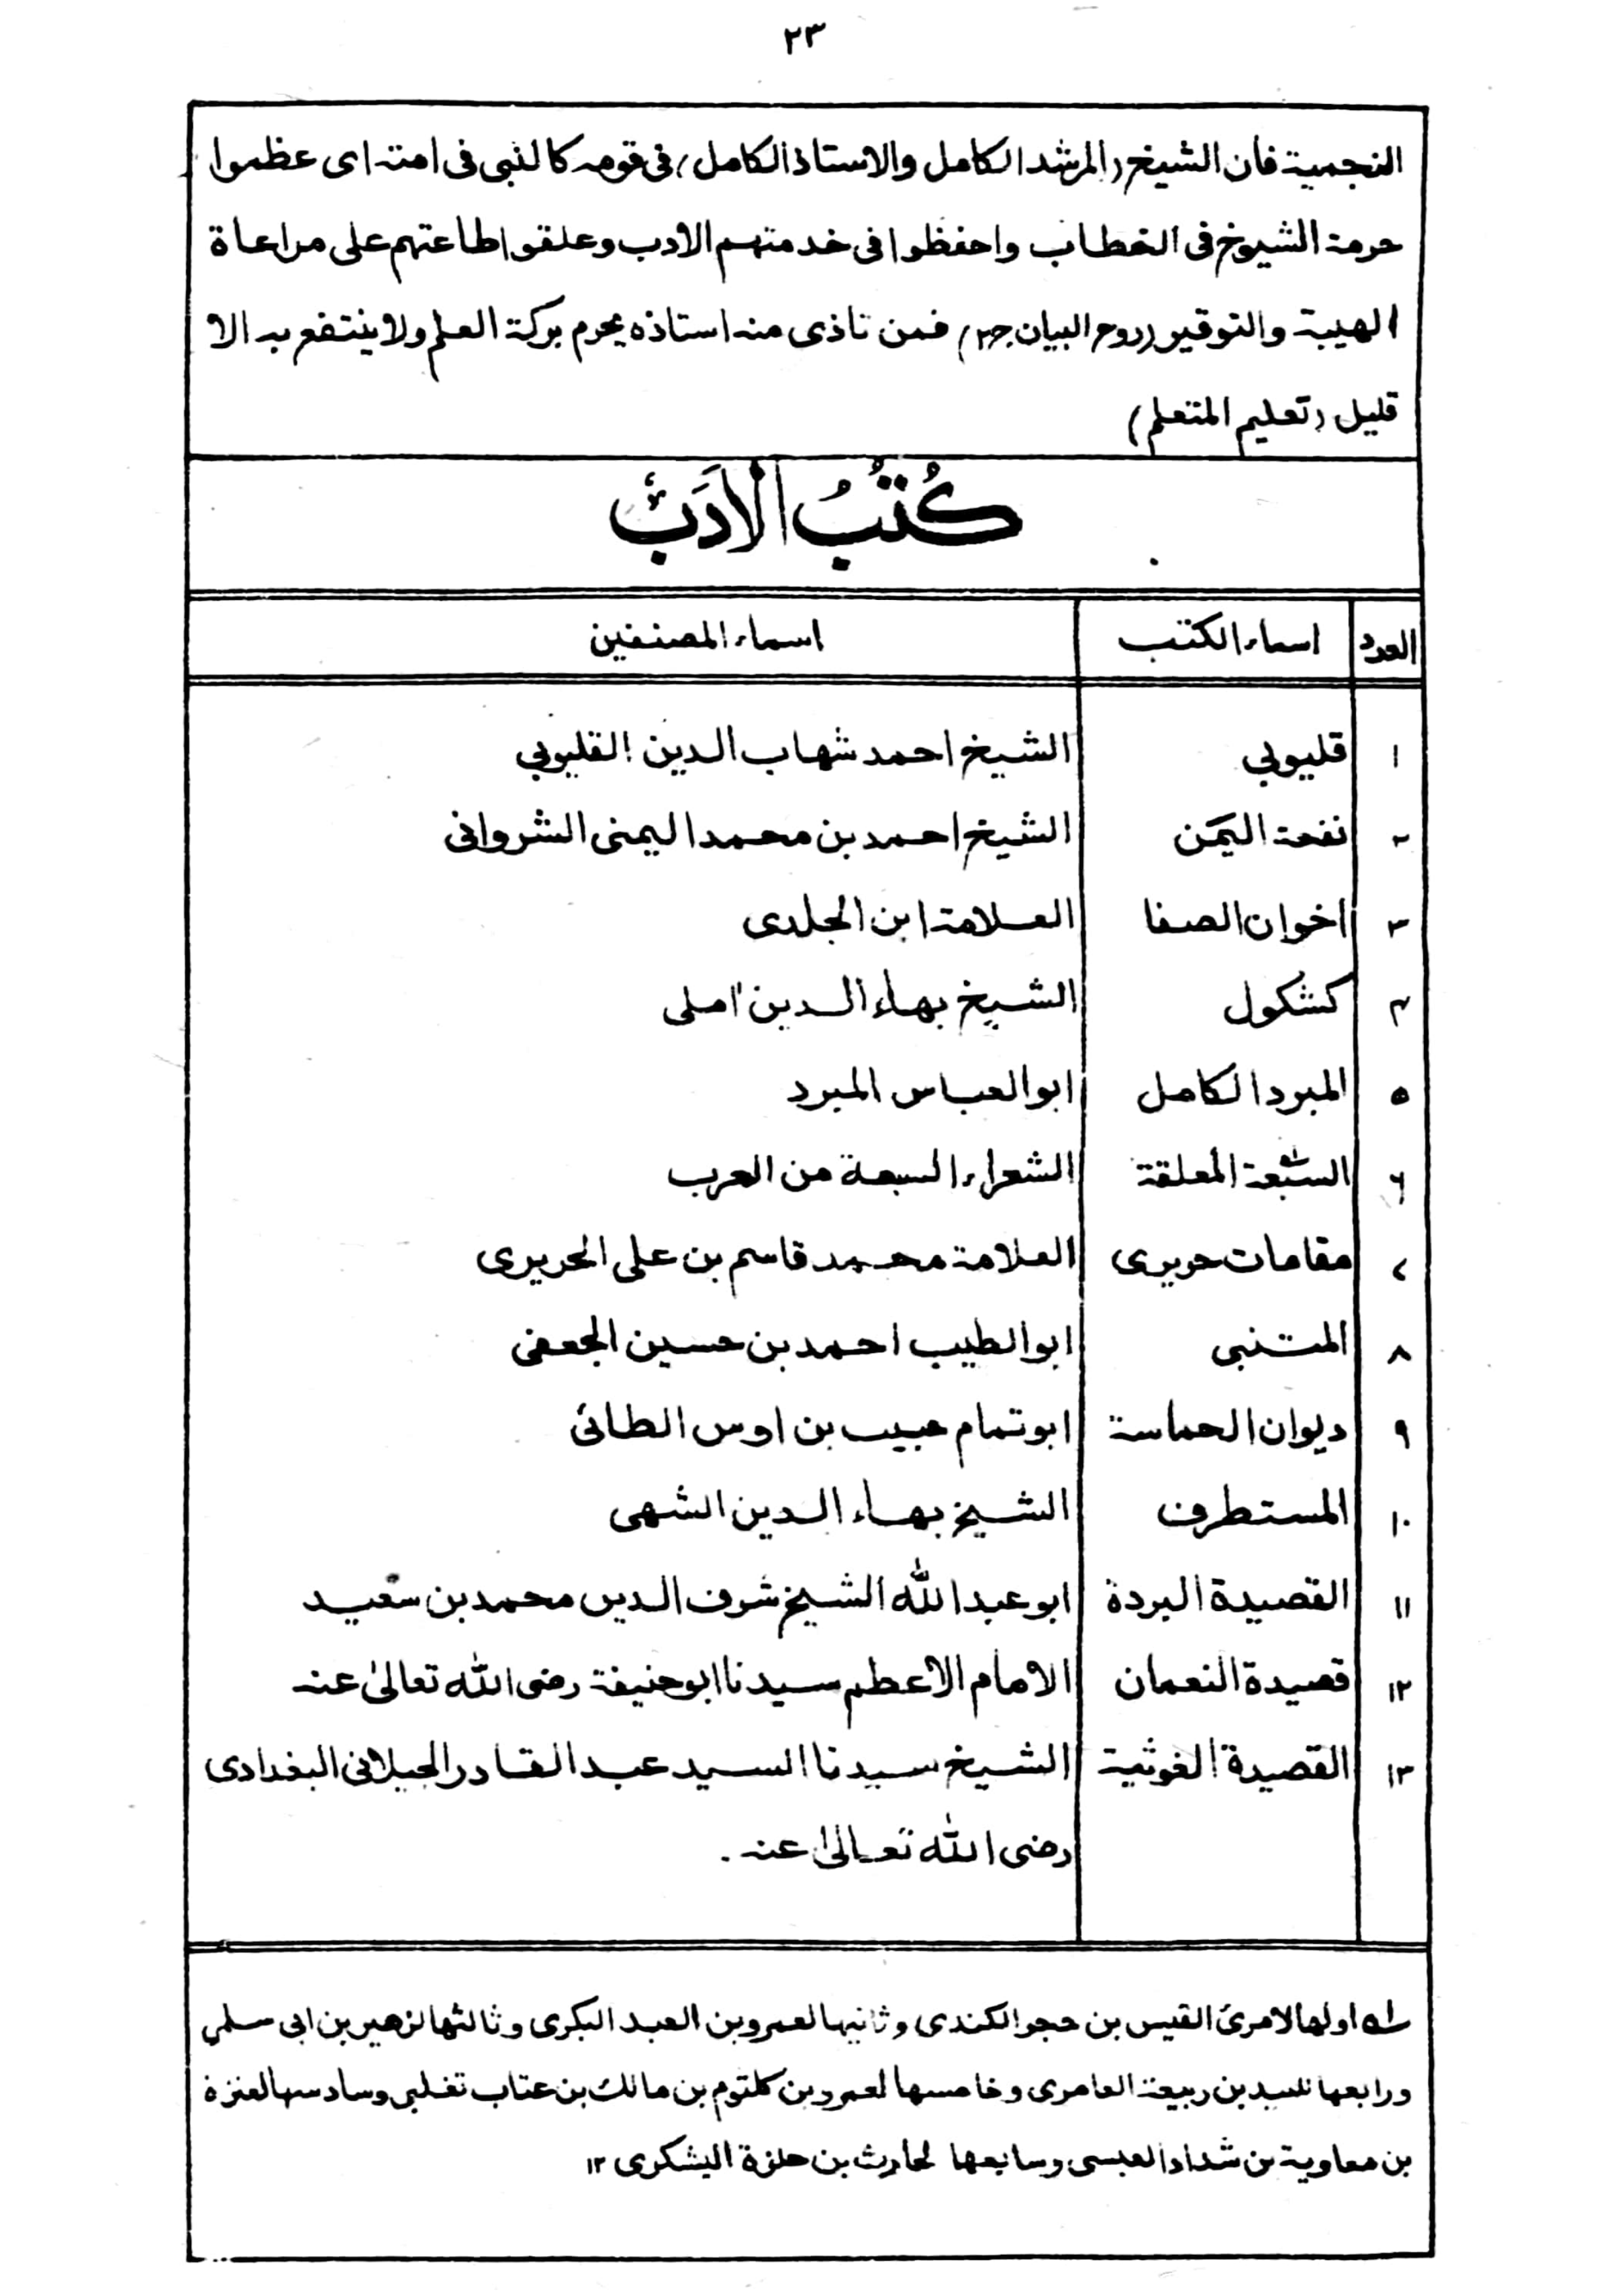 ٢٣
النجمية فان الشيخ (المرشد الكامل والاستاذ الكامل) فى قومه كالنبى فى امته اى عظموا
حرمة الشيوخ فى الخطاب واحفظوا فى خدمتهم الادب وعلقوا طاعتهم على مراعاة
الهيبة والتوقير (روح البيان ج٣) فمن تاذى منه استاذه يحرم بركة العلم ولا ينتفع به الا
قليل (تعليم المتعلم)
كُتُبُ الْاَدَبْ
العدد اسماء الكتب اسماء المصنفين
١ قليوبي الشيخ احمد شهاب الدين القليوبي
٢ نفحة اليمن الشيخ احمد بن محمد اليمنى الشروانى
٣ اخوان الصفا العلامة ابن الجلدى
٤ كشكول الشيخ بهاء الدين املى
٥ المبرد الكامل ابو العباس المبرد
٦ السبعة المعلقة الشعراء السبعة من العرب
٧ مقامات حريرى العلامة محمد قاسم بن على الحريرى
٨ المتنبى ابو الطيب احمد بن حسين الجعفى
٩ ديوان الحماسة ابو تمام حبيب بن اوس الطائى
١٠ المستطرف الشيخ بهاء الدين الشهى
١١ القصيدة البردة ابو عبد الله الشيخ شرف الدين محمد بن سعيد
١٢ قصيدة النعمان الامام الاعظم سيدنا ابو حنيفة رضى الله تعالىٰ عنه
١٣ القصيدة الغوثية الشيخ سيدنا السيد عبد القادر الجيلانى البغدادى
رضى الله تعالىٰ عنه .
له اولها لامرئ القيس بن حجر الكندى وثانيها لعمرو بن العبد البكرى وثالثها لزهير بن ابى سلمى
ورابعها للبيد بن ربيعة العامرى وخامسها لعمرو بن كلتوم بن مالك بن عتاب تغلبى وسادسها لعنزة
بن معاوية بن شداد العبسى وسابعها لحارث بن حلزة اليشكرى ١٢